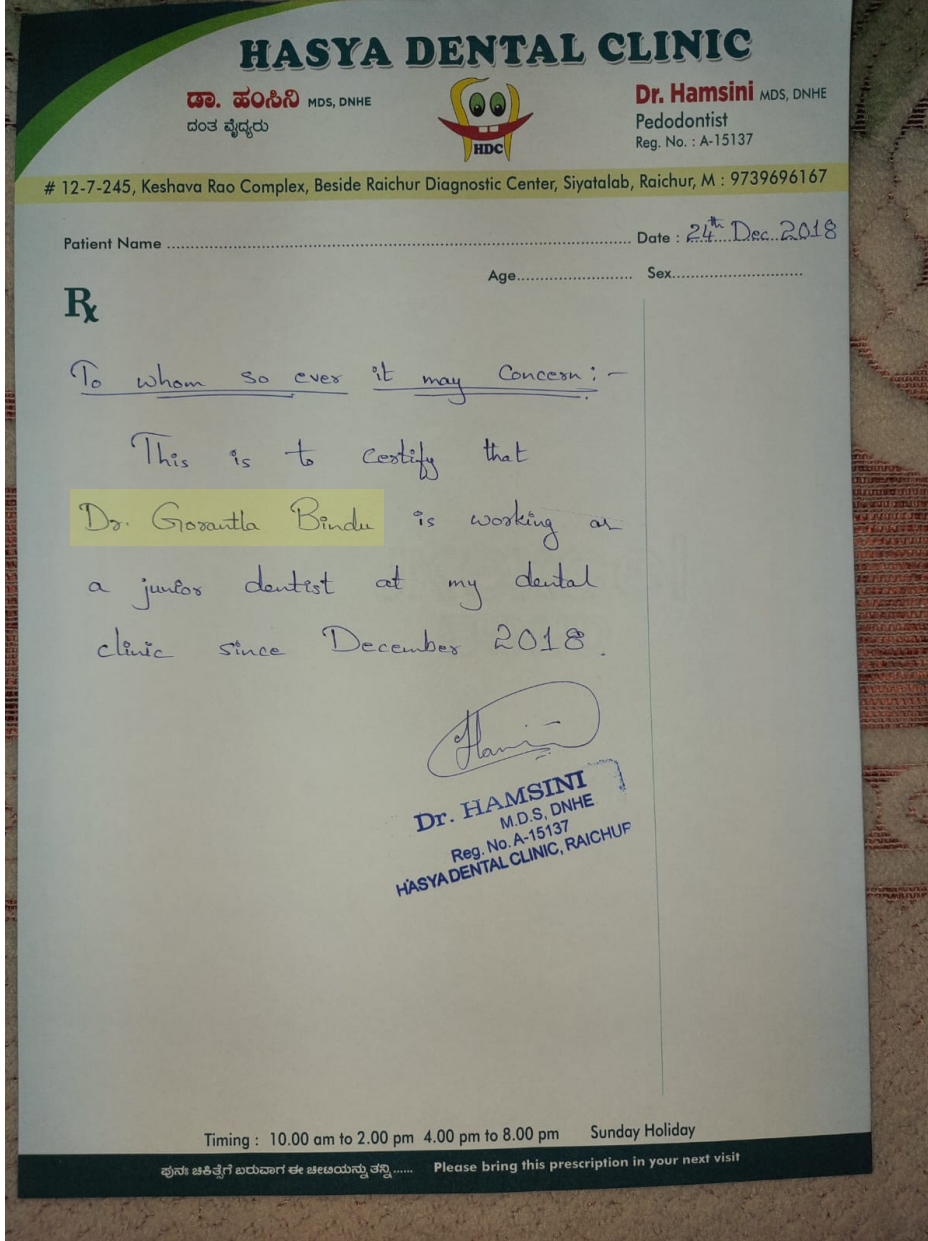 HASYA DENTAL CLINIC
ಡಾ. ಹಂಸಿನಿ MDS, DNHE
ದಂತ ವೈದ್ಯರು
HDC
Dr. Hamsini MDS, DNHE
Pedodontist
Reg. No. : A-15137
# 12-7-245, Keshava Rao Complex, Beside Raichur Diagnostic Center, Siyatalab, Raichur, M : 9739696167
Patient Name ........................ Date : 24th Dec 2018
Age........................ Sex........................
Rx
To whom so ever it may Concern : -
This is to certify that
Dr. Gorantla Bindu is working as
a junior dentist at my dental
clinic since December 2018.
Hamsini
Dr. HAMSINI
M.D.S, DNHE
Reg. No. A-15137
HASYA DENTAL CLINIC, RAICHUR
Timing : 10.00 am to 2.00 pm 4.00 pm to 8.00 pm Sunday Holiday
ಪುನಃ ಚಿಕಿತ್ಸೆಗೆ ಬರುವಾಗ ಈ ಚೀಟಿಯನ್ನು ತನ್ನಿ...... Please bring this prescription in your next visit